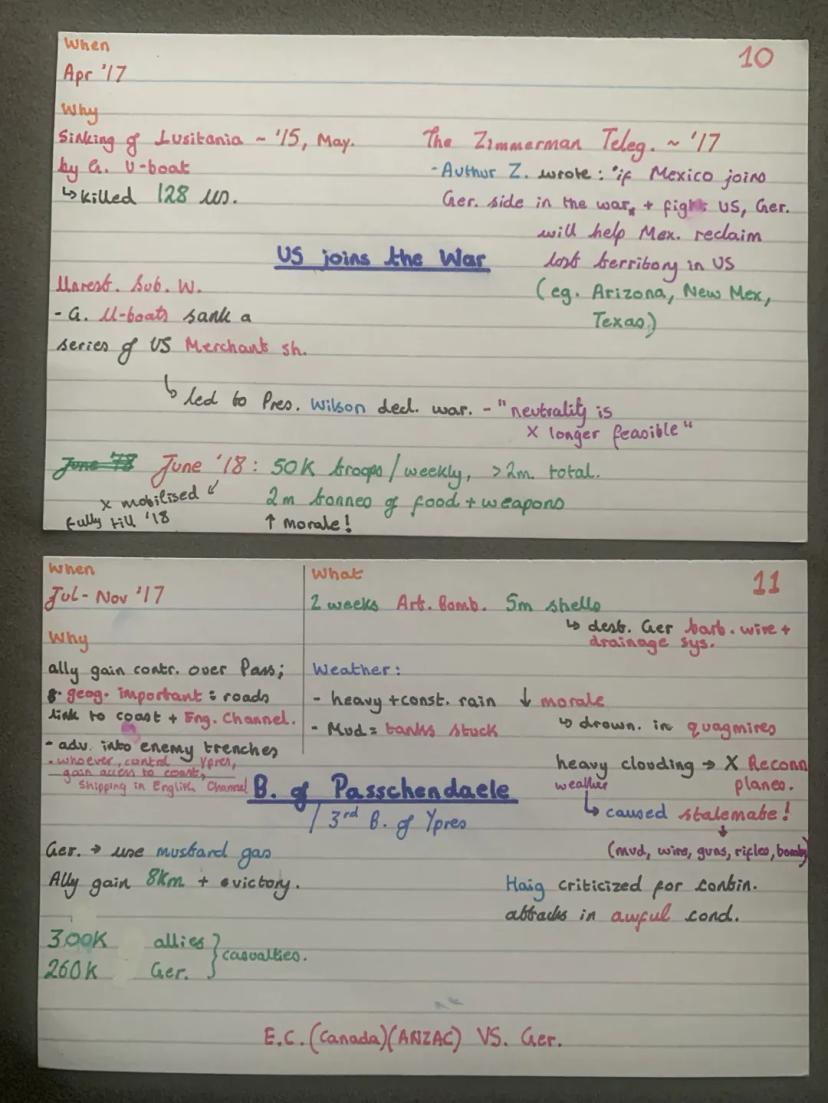 When
10
Apr '17
Why
Sinking of Lusitania ~ '15, May.
by G. U-boat
↳ killed 128 us.
The Zimmerman Teleg. ~ '17
- Authur Z. wrote: "if Mexico joins
Ger. side in the war, + fights US, Ger.
will help Mex. reclaim
lost territory in US
(eg. Arizona, New Mex,
Texas)
US joins the War
Unrest. Sub. W.
- G. U-boats sank a
series of US Merchant sh.
↳ led to Pres. Wilson decl. war. - "neutrality is
x longer feasible"
June '18 June '18: 50K troops/weekly, >2m. total.
x mobilised
fully till '18
2m tonnes of food + weapons
↑ morale!
When
11
Jul - Nov '17
Why
ally gain contr. over Pass;
geog. important: roads
link to coast + Eng. Channel.
- adv. into enemy trenches
- whoever, control Ypres,
gain access to coast,
shipping in English Channel
What
2 weeks Art. Bomb. 5m shells
↳ dest. Ger barb. wire +
drainage sys.
Weather:
- heavy + const. rain ↓ morale
- Mud = tanks stuck
↳ drown. in quagmires
heavy clouding → X Reconn
weather
planes.
↳ caused stalemate!
↓
(mud, wire, guns, rifles, bombs)
B. of Passchendaele
/ 3rd B. of Ypres
Ger. → use mustard gas
Ally gain 8km + victory.
Haig criticized for contin.
attacks in awful cond.
300K allies
260K Ger. } casualties.
E.C. (Canada)(ANZAC) VS. Ger.